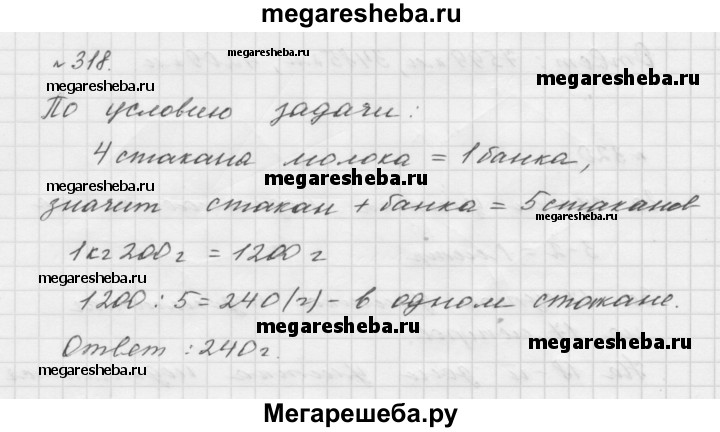 megaresheba.ru
№318.
megaresheba.ru
megaresheba.ru
megaresheba.ru
По условию задачи:
4 стакана молока = 1 банка,
megaresheba.ru
megaresheba.ru
значит стакан + банка = 5 стаканов
1 кг 200 г = 1200 г
megaresheba.ru
megaresheba.ru
1200 : 5 = 240 (г) - в одном стакане.
megaresheba.ru
Ответ : 240 г.
megaresheba.ru
megaresheba.ru
Мегарешеба.ру